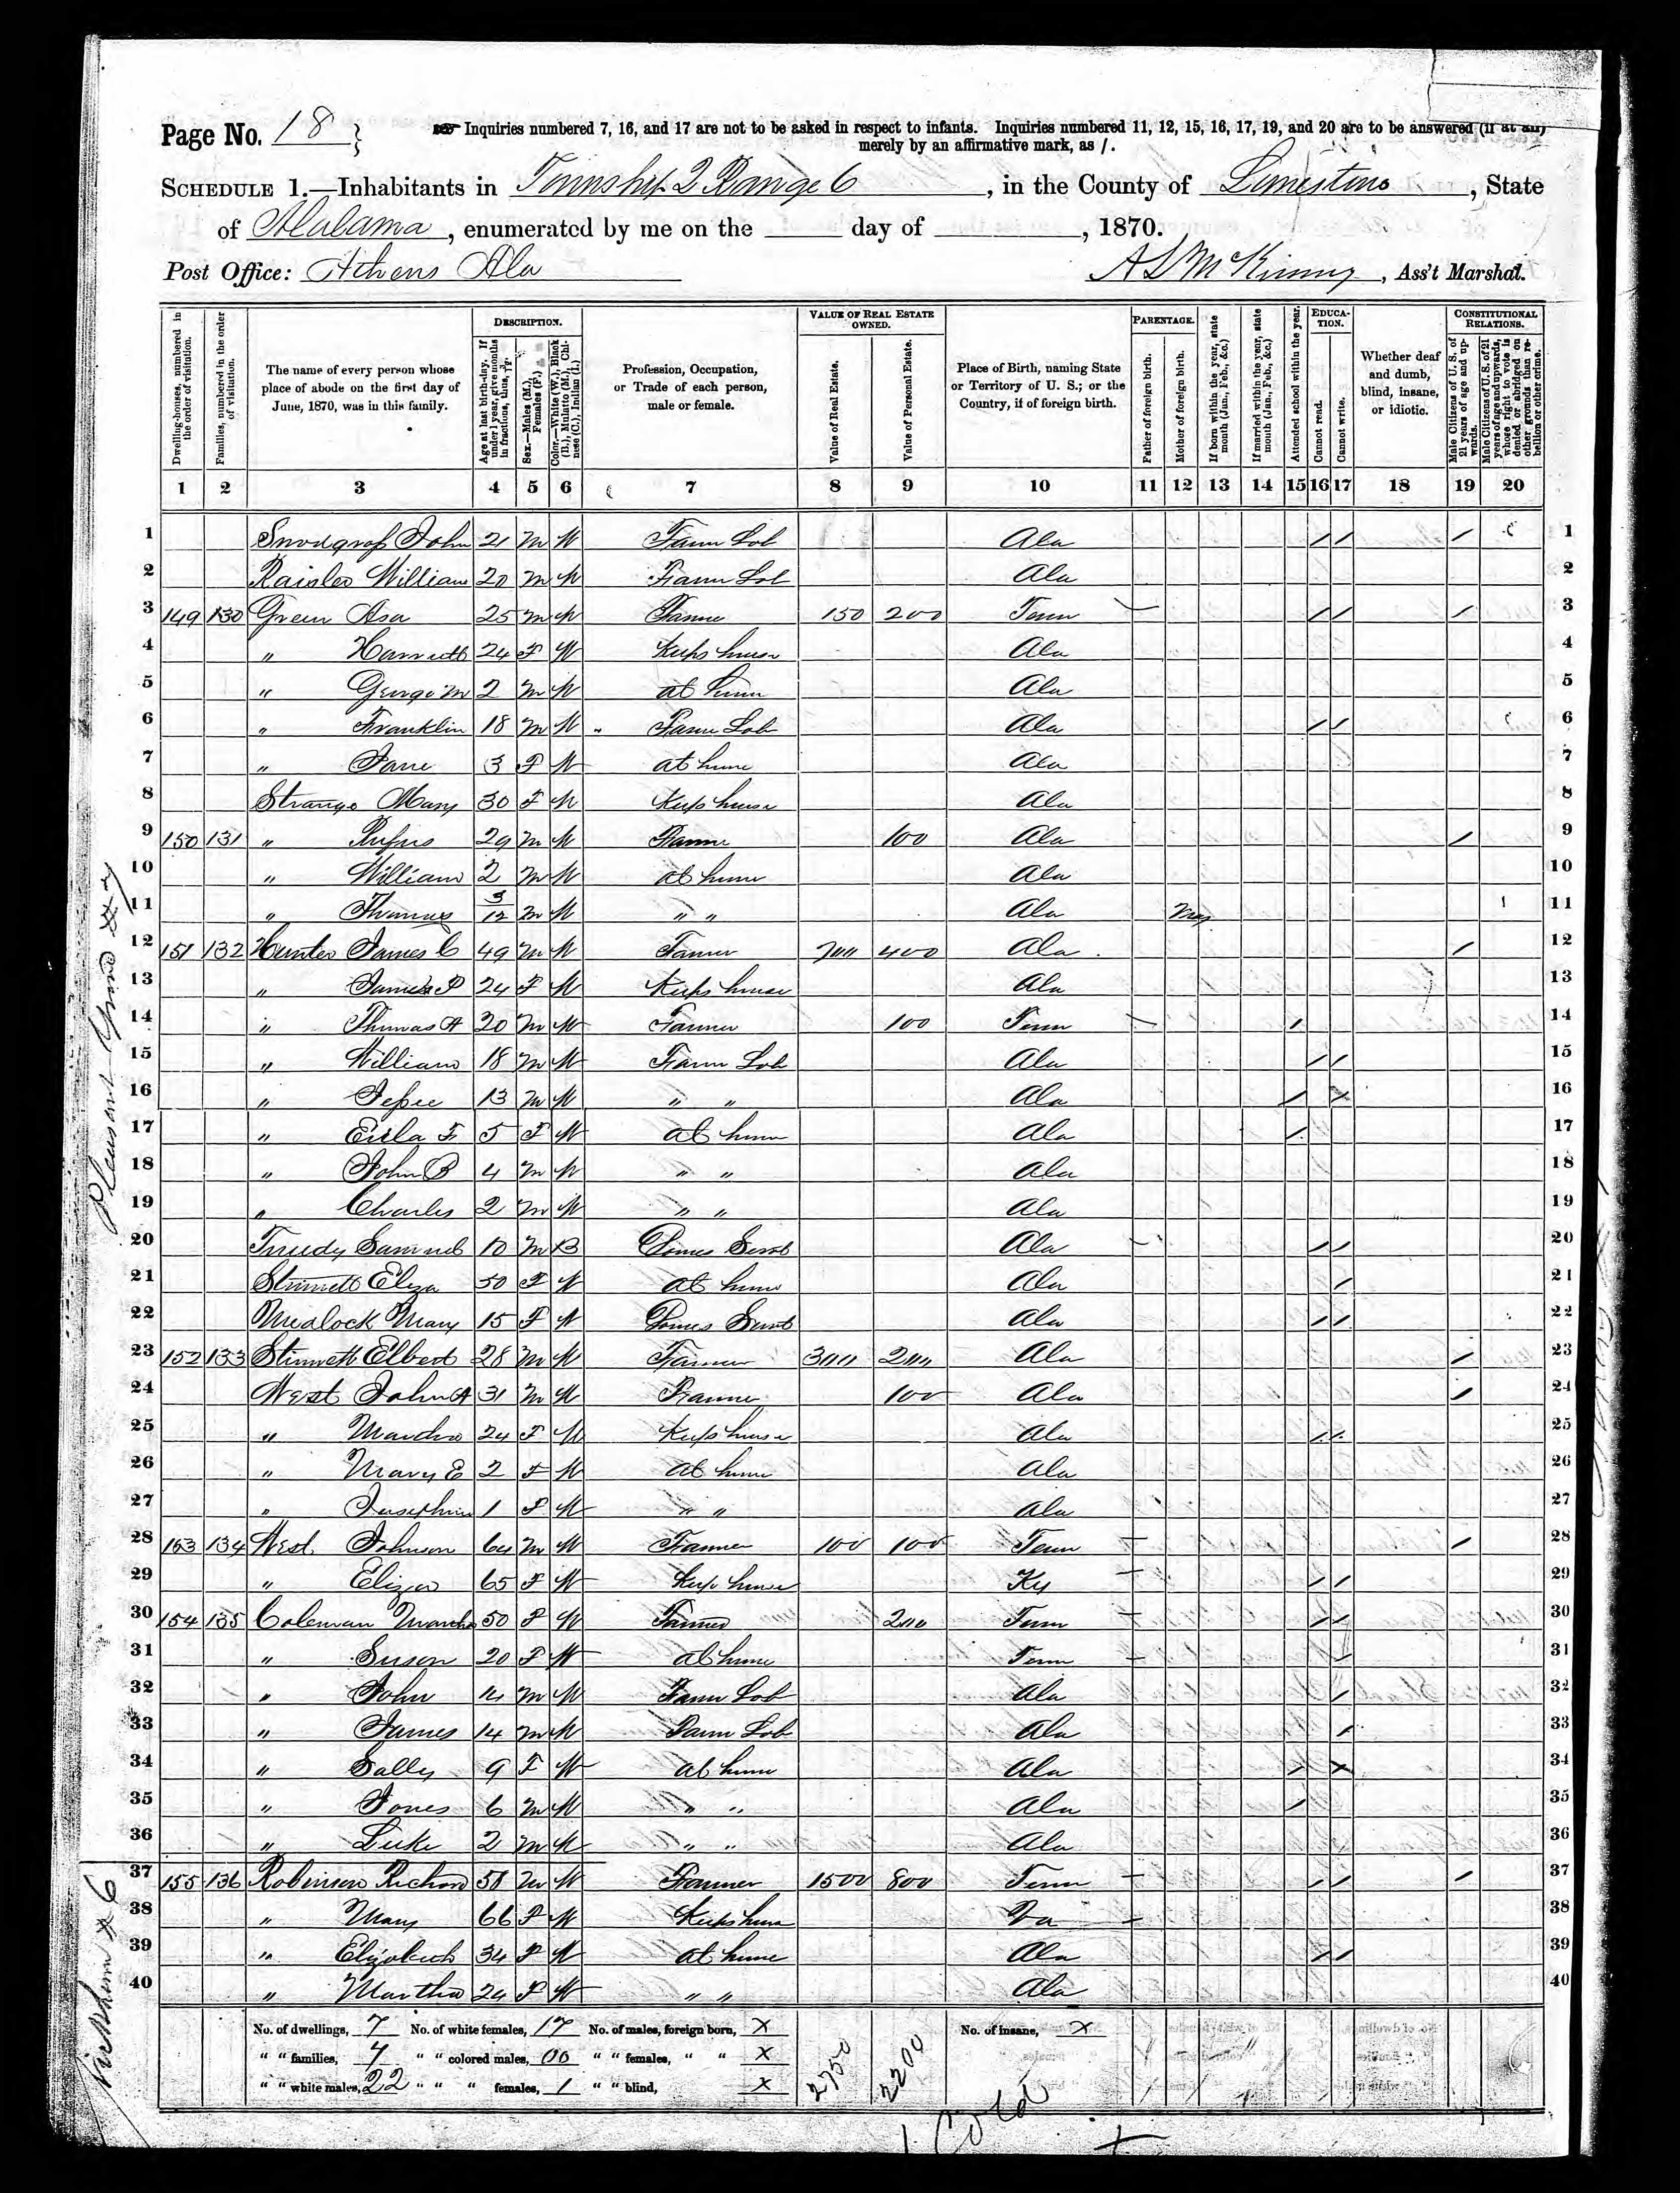 Page No. 18
Inquiries numbered 7, 16, and 17 are not to be asked in respect to infants. Inquiries numbered 11, 12, 15, 16, 17, 19, and 20 are to be answered (if at all)
merely by an affirmative mark, as /.
SCHEDULE 1.—Inhabitants in Township 2 Range 6, in the County of Limestone, State
of Alabama, enumerated by me on the ___ day of ___, 1870.
Post Office: Athens Ala
A S McKinny, Ass't Marshal.
Dwelling-houses, numbered in the order of visitation.
Families, numbered in the order of visitation.
The name of every person whose place of abode on the first day of June, 1870, was in this family.
DESCRIPTION.
Age at last birth-day. If under 1 year, give months in fractions, thus, 3/12.
Sex.—Males (M.), Females (F.)
Color.—White (W.), Black (B.), Mulatto (M.), Chinese (C.), Indian (I.)
Profession, Occupation, or Trade of each person, male or female.
VALUE OF REAL ESTATE OWNED.
Value of Real Estate.
Value of Personal Estate.
Place of Birth, naming State or Territory of U. S.; or the Country, if of foreign birth.
PARENTAGE.
Father of foreign birth.
Mother of foreign birth.
If born within the year, state month (Jan., Feb., &c.)
If married within the year, state month (Jan., Feb., &c.)
Attended school within the year.
EDUCATION.
Cannot read.
Cannot write.
Whether deaf and dumb, blind, insane, or idiotic.
CONSTITUTIONAL RELATIONS.
Male Citizens of U. S. of 21 years of age and upwards.
Male Citizens of U. S. of 21 years of age and upwards, whose right to vote is denied or abridged on other grounds than rebellion or other crime.
1 2 3 4 5 6 7 8 9 10 11 12 13 14 15 16 17 18 19 20
1 Snodgrass John 21 M W Farm Lab Ala / / / 1
2 William 20 M W Farm Lab Ala 2
3 149 130 Green Asa 25 M W Farmer 150 200 Tenn / / / 3
4 " Harriett 24 F W Keeps house Ala 4
5 " George M 2 M W at home Ala 5
6 " Franklin 18 M W Farm Lab Ala / / 6
7 " Jane 3 F W at home Ala 7
8 Strange Mary 30 F W Keeps house Ala 8
9 150 131 " Rufus 29 M W Farmer 100 Ala / 9
10 " William 2 M W at home Ala 10
11 " Thomas 3/12 M W " " Ala May 11
12 151 132 Hunter James C 49 M W Farmer 700 400 Ala / 12
13 " P 24 F W Keeps house Ala 13
14 " Thomas A 20 M W Farmer 100 Tenn / 14
15 " William 18 M W Farm Lab Ala / / 15
16 " Jessee 13 M W " " Ala / X 16
17 " F 5 F W at home Ala / 17
18 " John B 4 M W " " Ala 18
19 " Charles 2 M W " " Ala 19
20 Samuel 10 M B Domes Servt Ala / / 20
21 Stinnett Eliza 50 F W at home Ala / 21
22 Mealock Mary 15 F W Domes Servt Ala / / 22
23 152 133 Stinnett Elbert 28 M W Farmer 300 200 Ala / 23
24 West John A 31 M W Farmer 100 Ala / 24
25 " Martha 24 F W Keeps house Ala / / 25
26 " Mary E 2 F W at home Ala 26
27 " Josephine 1 F W " " Ala 27
28 153 134 West Johnson 64 M W Farmer 100 100 Tenn / 28
29 " Eliza 65 F W Keeps house Ky / / 29
30 154 135 Coleman Martha 50 F W Farmer 200 Tenn / / 30
31 " Susen 20 F W at home Tenn / 31
32 " John 14 M W Farm Lab Ala / 32
33 " James 14 M W Farm Lab Ala / 33
34 " Sally 9 F W at home Ala / X 34
35 " Jones 6 M W " " Ala / 35
36 " Luke 2 M W " " Ala 36
37 155 136 Robinson Richard 58 M W Farmer 1500 800 Tenn / / / 37
38 " Mary 66 F W Keeps house Va 38
39 " Elizabeth 34 F W at home Ala / / 39
40 " Martha 24 F W " " Ala 40
No. of dwellings, 7 No. of white females, 17 No. of males, foreign born, X No. of insane, X
" " families, 7 " " colored males, 00 " " females, " " X
" " white males, 22 " " " females, 1 " " blind, X
2750
2200
1 Cold